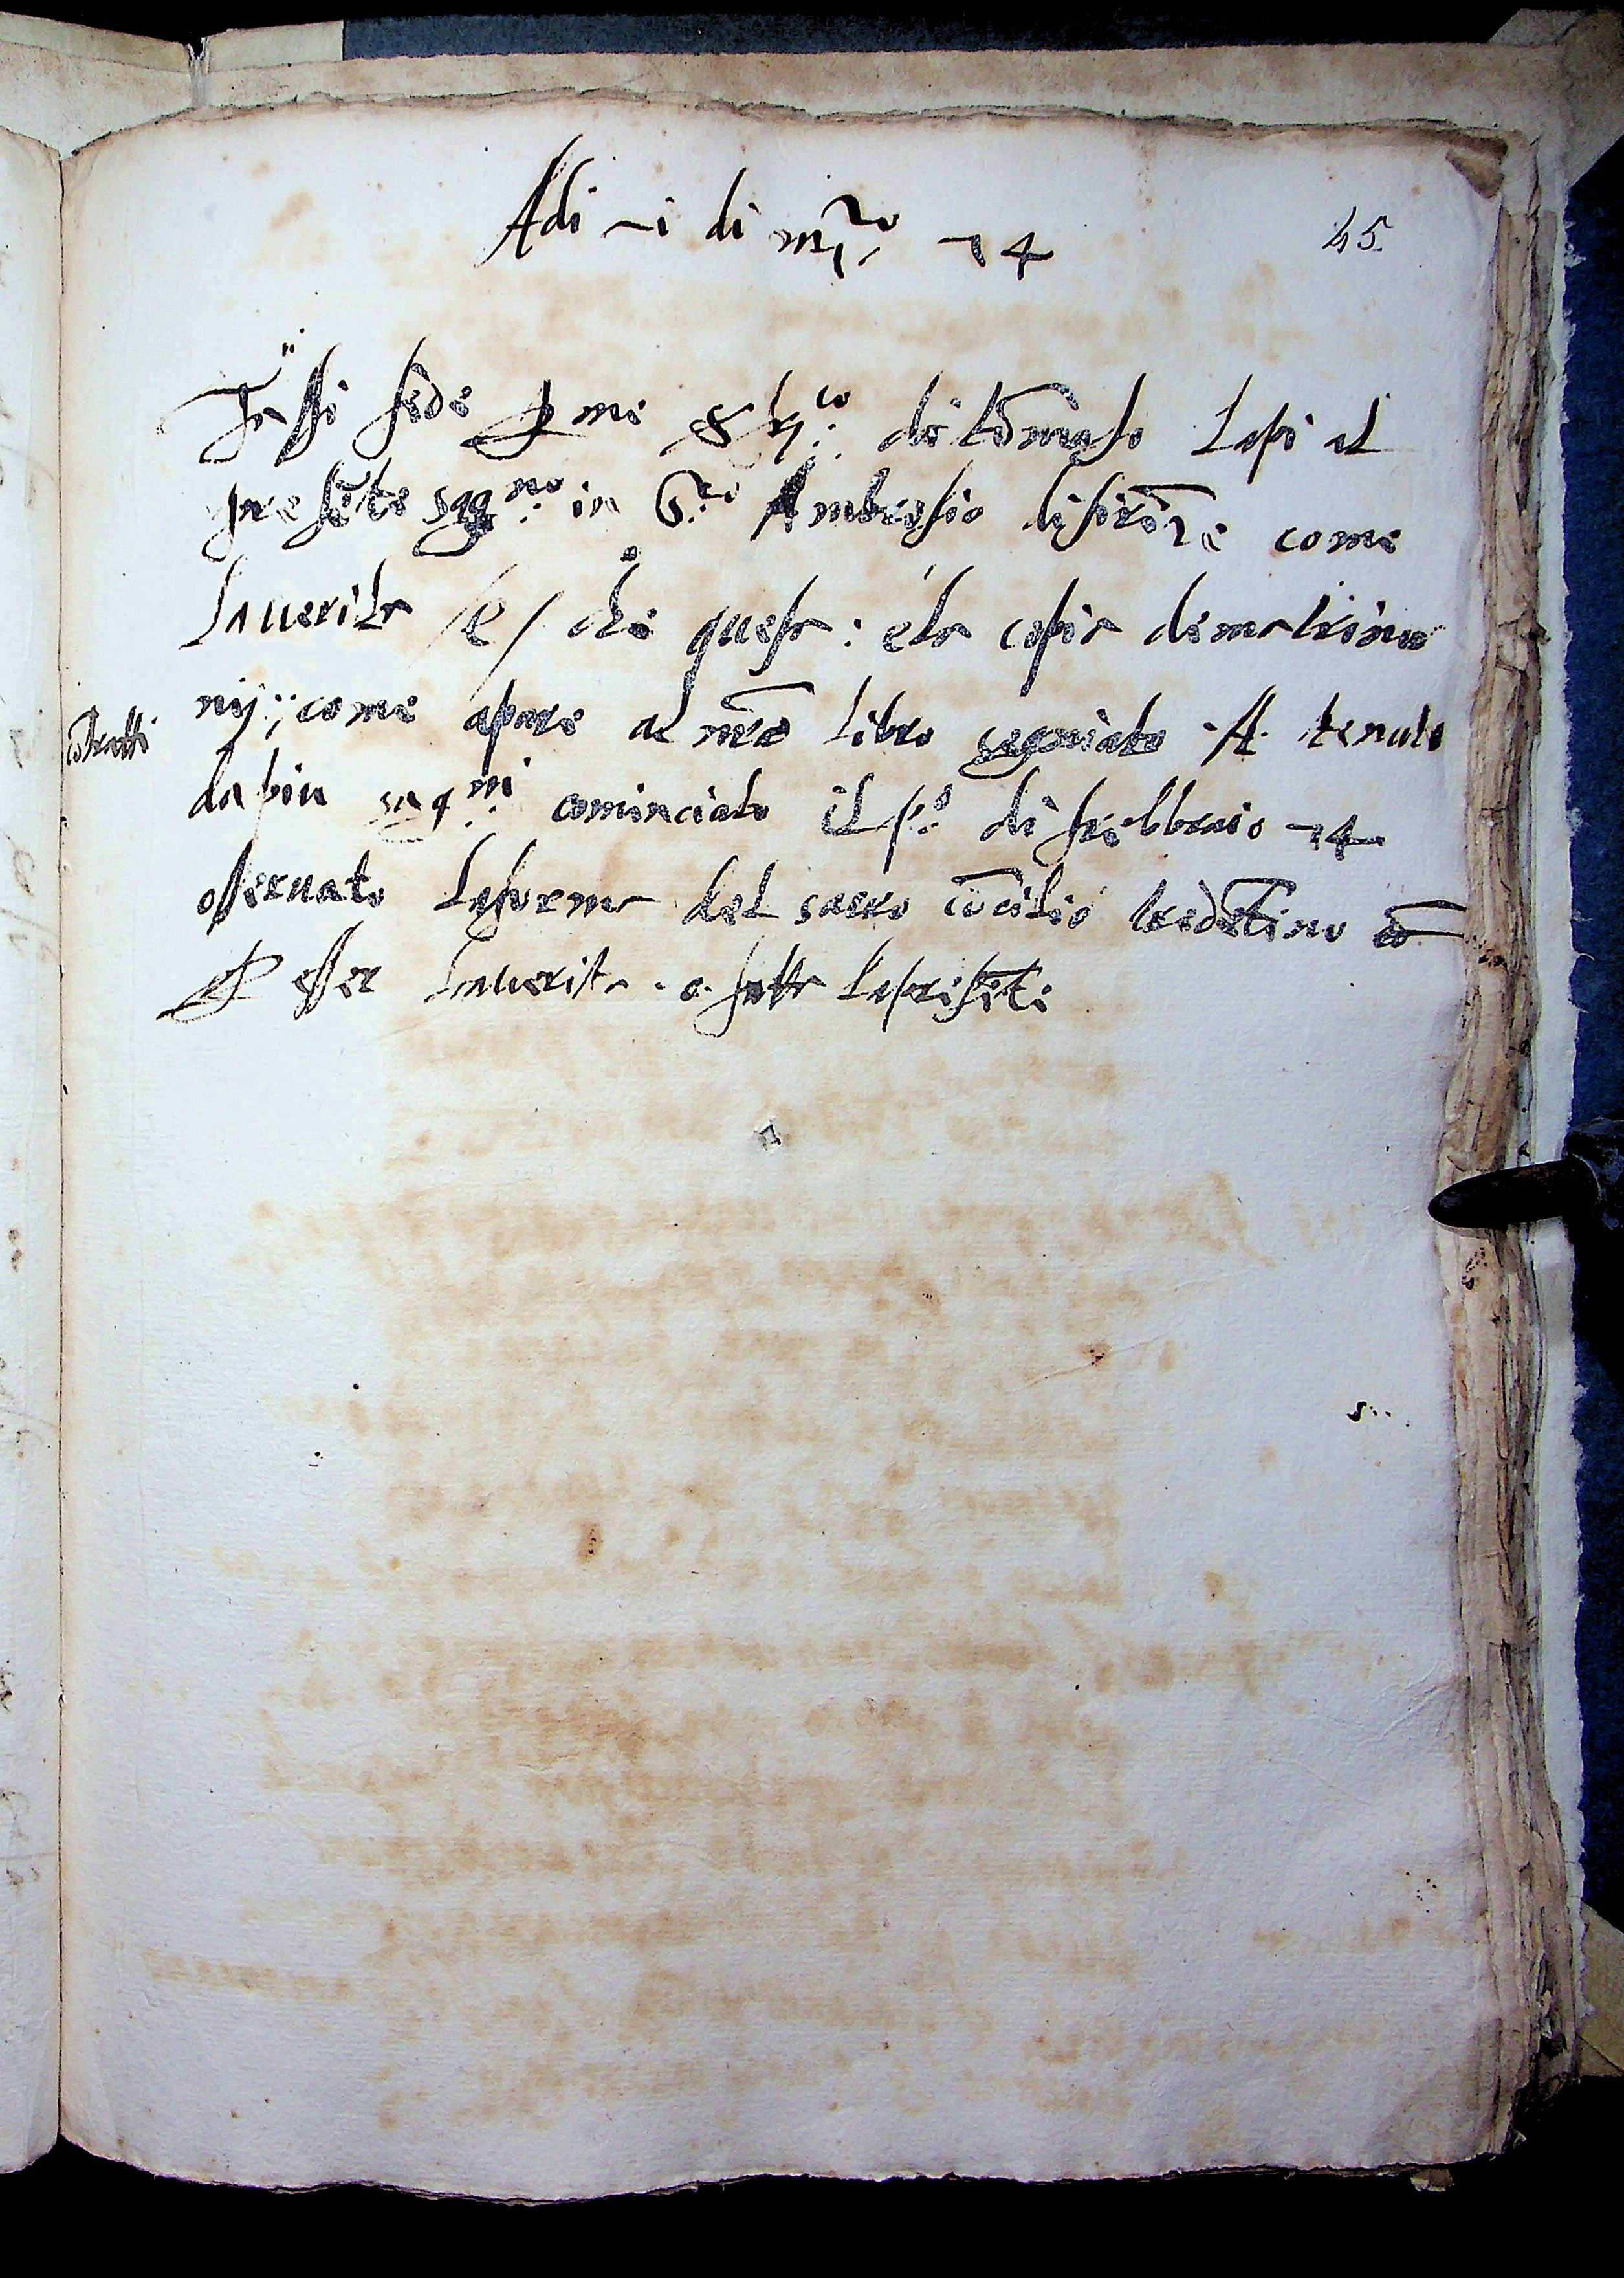 Adi -i di mzo 74
45.
Fassi fede p me Fco di tomaso Lapi al
presete sagno in Sto Ambrosio di firēze come
la uerita /e/ che questa : e la copia di matrimo
nij: come apare al nro libro segniato .A. tenuto
cōtratti
da piu sagni cominciato il po di febbraio 74
osseruato la forma del sacro cōcilio tridētino cō
p esser la uerita . o fatto la presēte